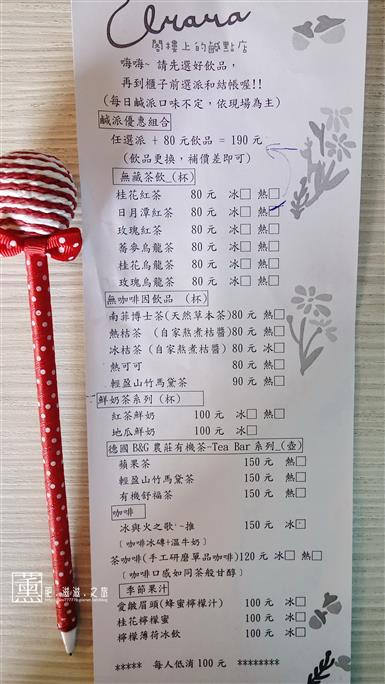 Arara
閣樓上的鹹點店
嗨嗨~ 請先選好飲品,
再到櫃子前選派和結帳喔!!
(每日鹹派口味不定,依現場為主)
鹹派優惠組合
任選派 + 80 元飲品 = 190 元
(飲品更換,補價差即可)
無藏茶飲_(杯)
桂花紅茶 80 元 冰□ 熱□
日月潭紅茶 80 元 冰□ 熱□
玫瑰紅茶 80 元 冰□ 熱□
蕎麥烏龍茶 80 元 冰□ 熱□
桂花烏龍茶 80 元 冰□ 熱□
玫瑰烏龍茶 80 元 冰□ 熱□
無咖啡因飲品 (杯)
南菲博士茶(天然草本茶)80 元 熱□
熱桔茶 (自家熬煮桔醬) 80 元 熱□
冰桔茶 (自家熬煮桔醬) 80 元 冰□
熱可可 80 元 熱□
輕盈山竹馬黛茶 90 元 熱□
鮮奶茶系列(杯)
紅茶鮮奶 100 元 冰□ 熱□
地瓜鮮奶 100 元 冰□
德國 B&G 農莊有機茶-Tea Bar 系列_(壺)
蘋果茶 150 元 熱□
輕盈山竹馬黛茶 150 元 熱□
有機舒福茶 150 元 熱□
咖啡
冰與火之歌~推 150 元 冰□
﹝咖啡冰磚+溫牛奶﹞
茶咖啡(手工研磨單品咖啡)120 元 冰□ 熱□
﹝咖啡口感如同茶般甘醇﹞
季節果汁
愛皺眉頭(蜂蜜檸檬汁) 100 元 冰□
桂花檸檬蜜 100 元 冰□
檸檬薄荷冰飲 100 元 冰□
***** 每人低消 100 元 ********
薰